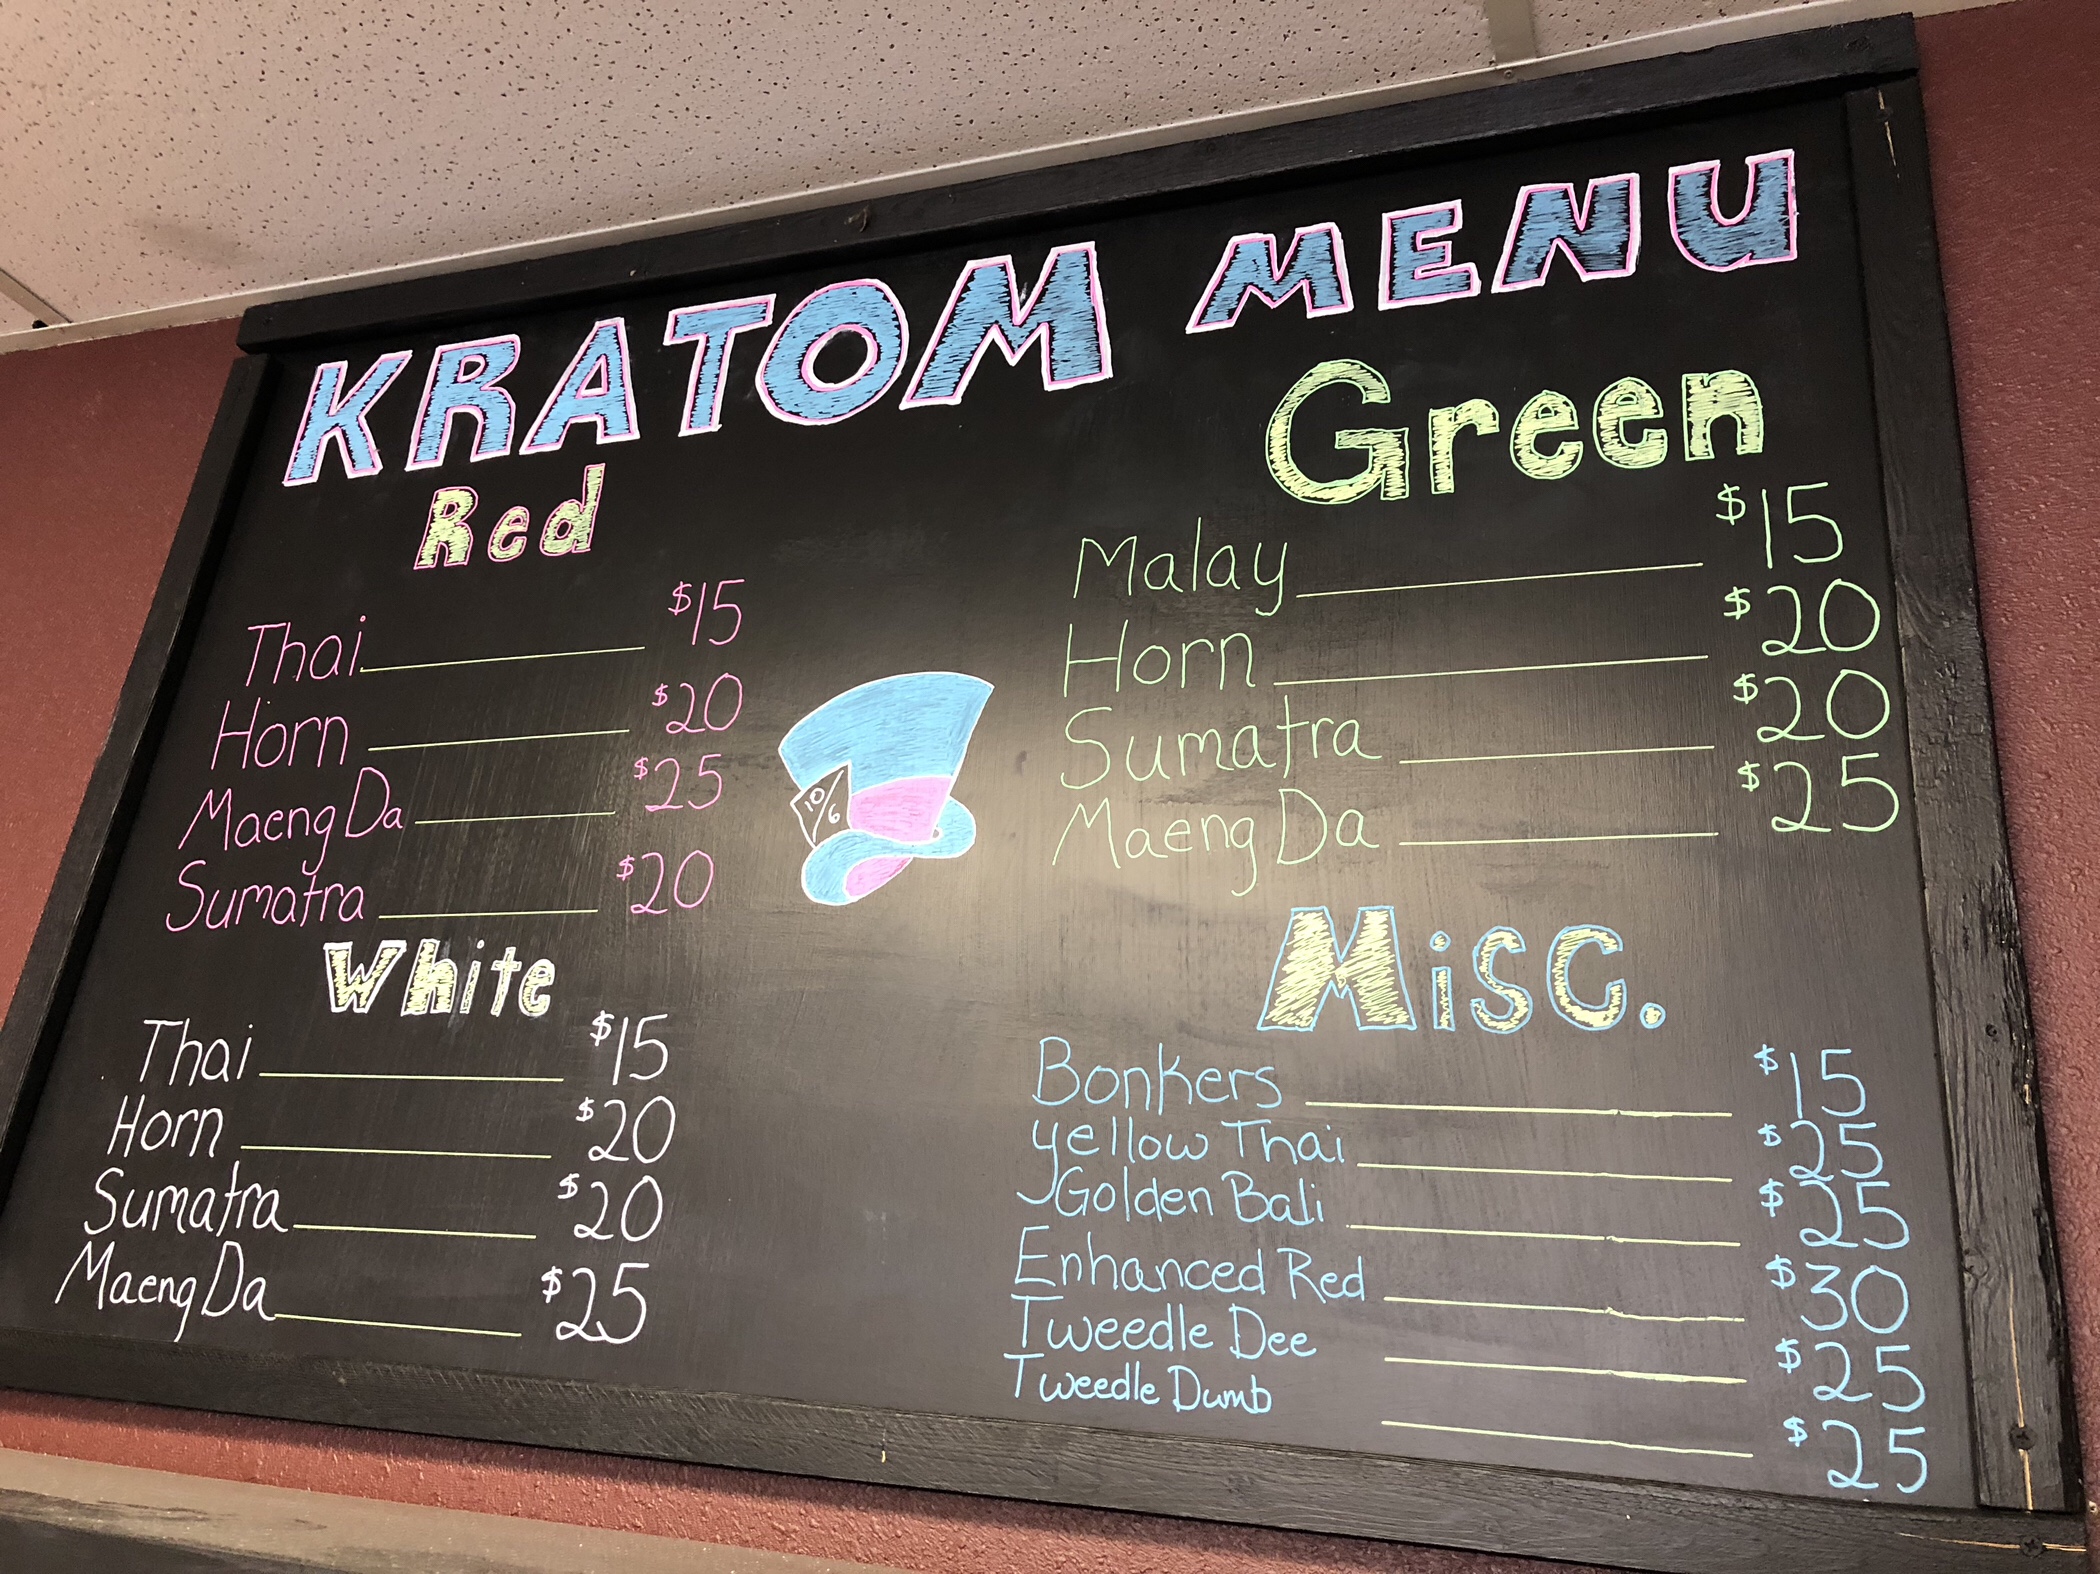 KRATOM MENU
Red
Thai $15
Horn $20
Maeng Da $25
Sumatra $20
White
Thai $15
Horn $20
Sumatra $20
Maeng Da $25
10/6
Green
Malay $15
Horn $20
Sumatra $20
Maeng Da $25
Misc.
Bonkers $15
yellow Thai $25
Golden Bali $25
Enhanced Red $30
Tweedle Dee $25
Tweedle Dumb $25